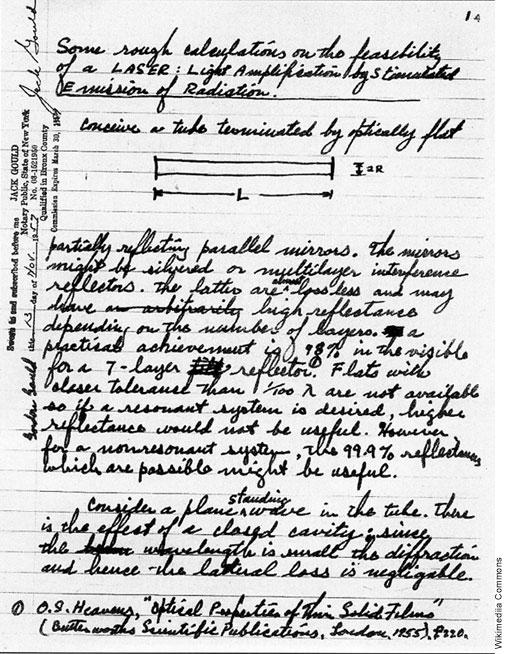 1 4
Some rough calculations on the feasibility
of a LASER: Light Amplification by Stimulated
Emission of Radiation.
Conceive a tube terminated by optically flat
2R
L
partially reflecting parallel mirrors. The mirrors
might be silvered or multilayer interference
reflectors. The latter are almost lossless and may
have an arbitrarily high reflectance
depending on the number of layers. a
practical achievement is 98% in the visible
for a 7-layer reflector.① Flats with
closer tolerance than 1/100 λ are not available
so if a resonant system is desired, higher
reflectance would not be useful. However,
for a nonresonant system, the 99.9% reflectances
which are possible might be useful.
Consider a plane standing wave in the tube. There
is the effect of a closed cavity; since
the wavelength is small the diffraction
and hence the lateral loss is negligable.
① O.S. Heavens, "Optical Properties of Thin Solid Films"
(Butterworths Scientific Publications, London, 1955), p220.
Jack Gould
Sworn to and subscribed before me
the 13 day of Nov. 1957
JACK GOULD
Notary Public, State of New York
No. 03-1521950
Qualified in Bronx County
Commission Expires March 30, 1959
Gordon Gould
Wikimedia Commons